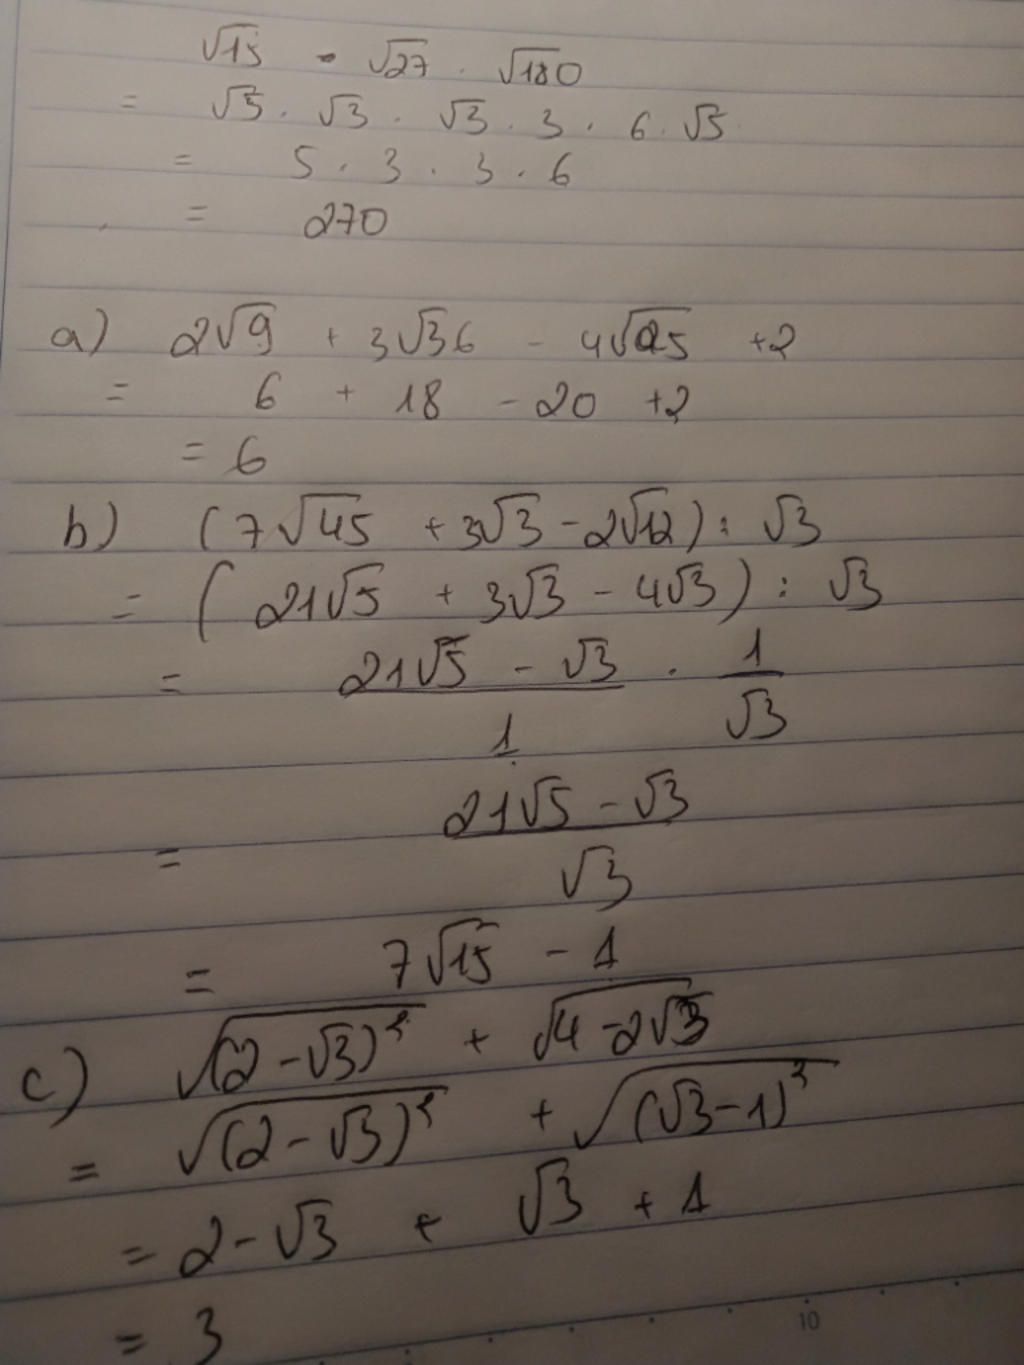 √15 · √27 · √180
= √5 · √3 · √3 · 3 · 6 · √5
= 5 · 3 · 3 · 6
= 270
a) 2√9 + 3√36 - 4√25 +2
= 6 + 18 - 20 +2
= 6
b) (7√45 + 3√3 - 2√12) : √3
= (21√5 + 3√3 - 4√3) : √3
= (21√5 - √3)/1 · 1/√3
= (21√5 - √3)/√3
= 7√15 - 1
c) √(2-√3)² + √4-2√3
= √(2-√3)² + √(√3-1)²
= 2-√3 + √3 + 1
= 3
10